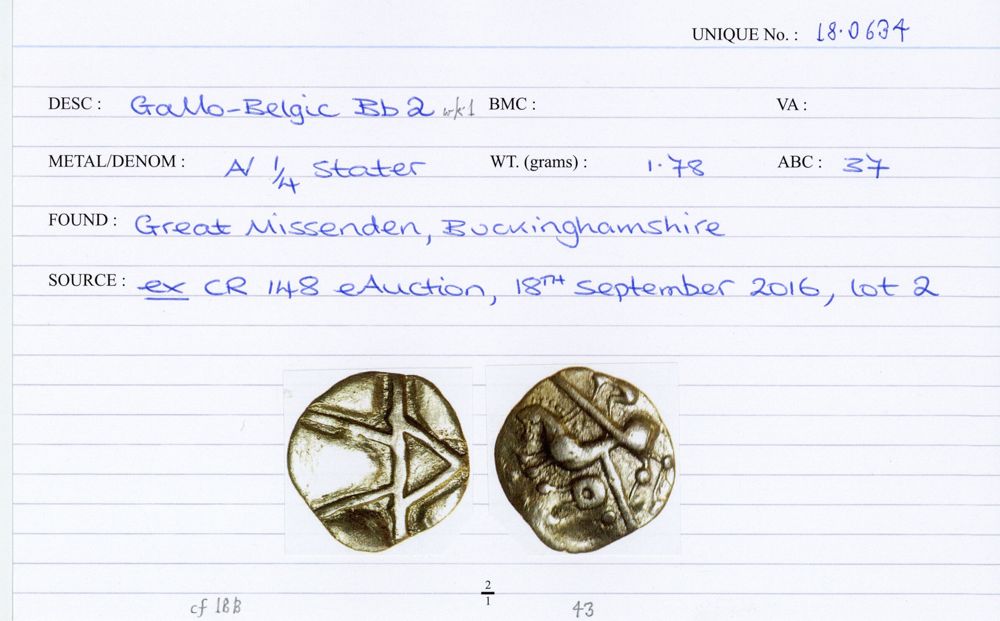 UNIQUE No. : 18·0634
DESC : Gallo-Belgic Bb 2 wk1 BMC : VA :
METAL/DENOM : A/ 1/4 Stater WT. (grams) : 1·78 ABC : 37
FOUND : Great Missenden, Buckinghamshire
SOURCE : ex CR 148 eAuction, 18TH September 2016, lot 2
2/1
cf 18B 43